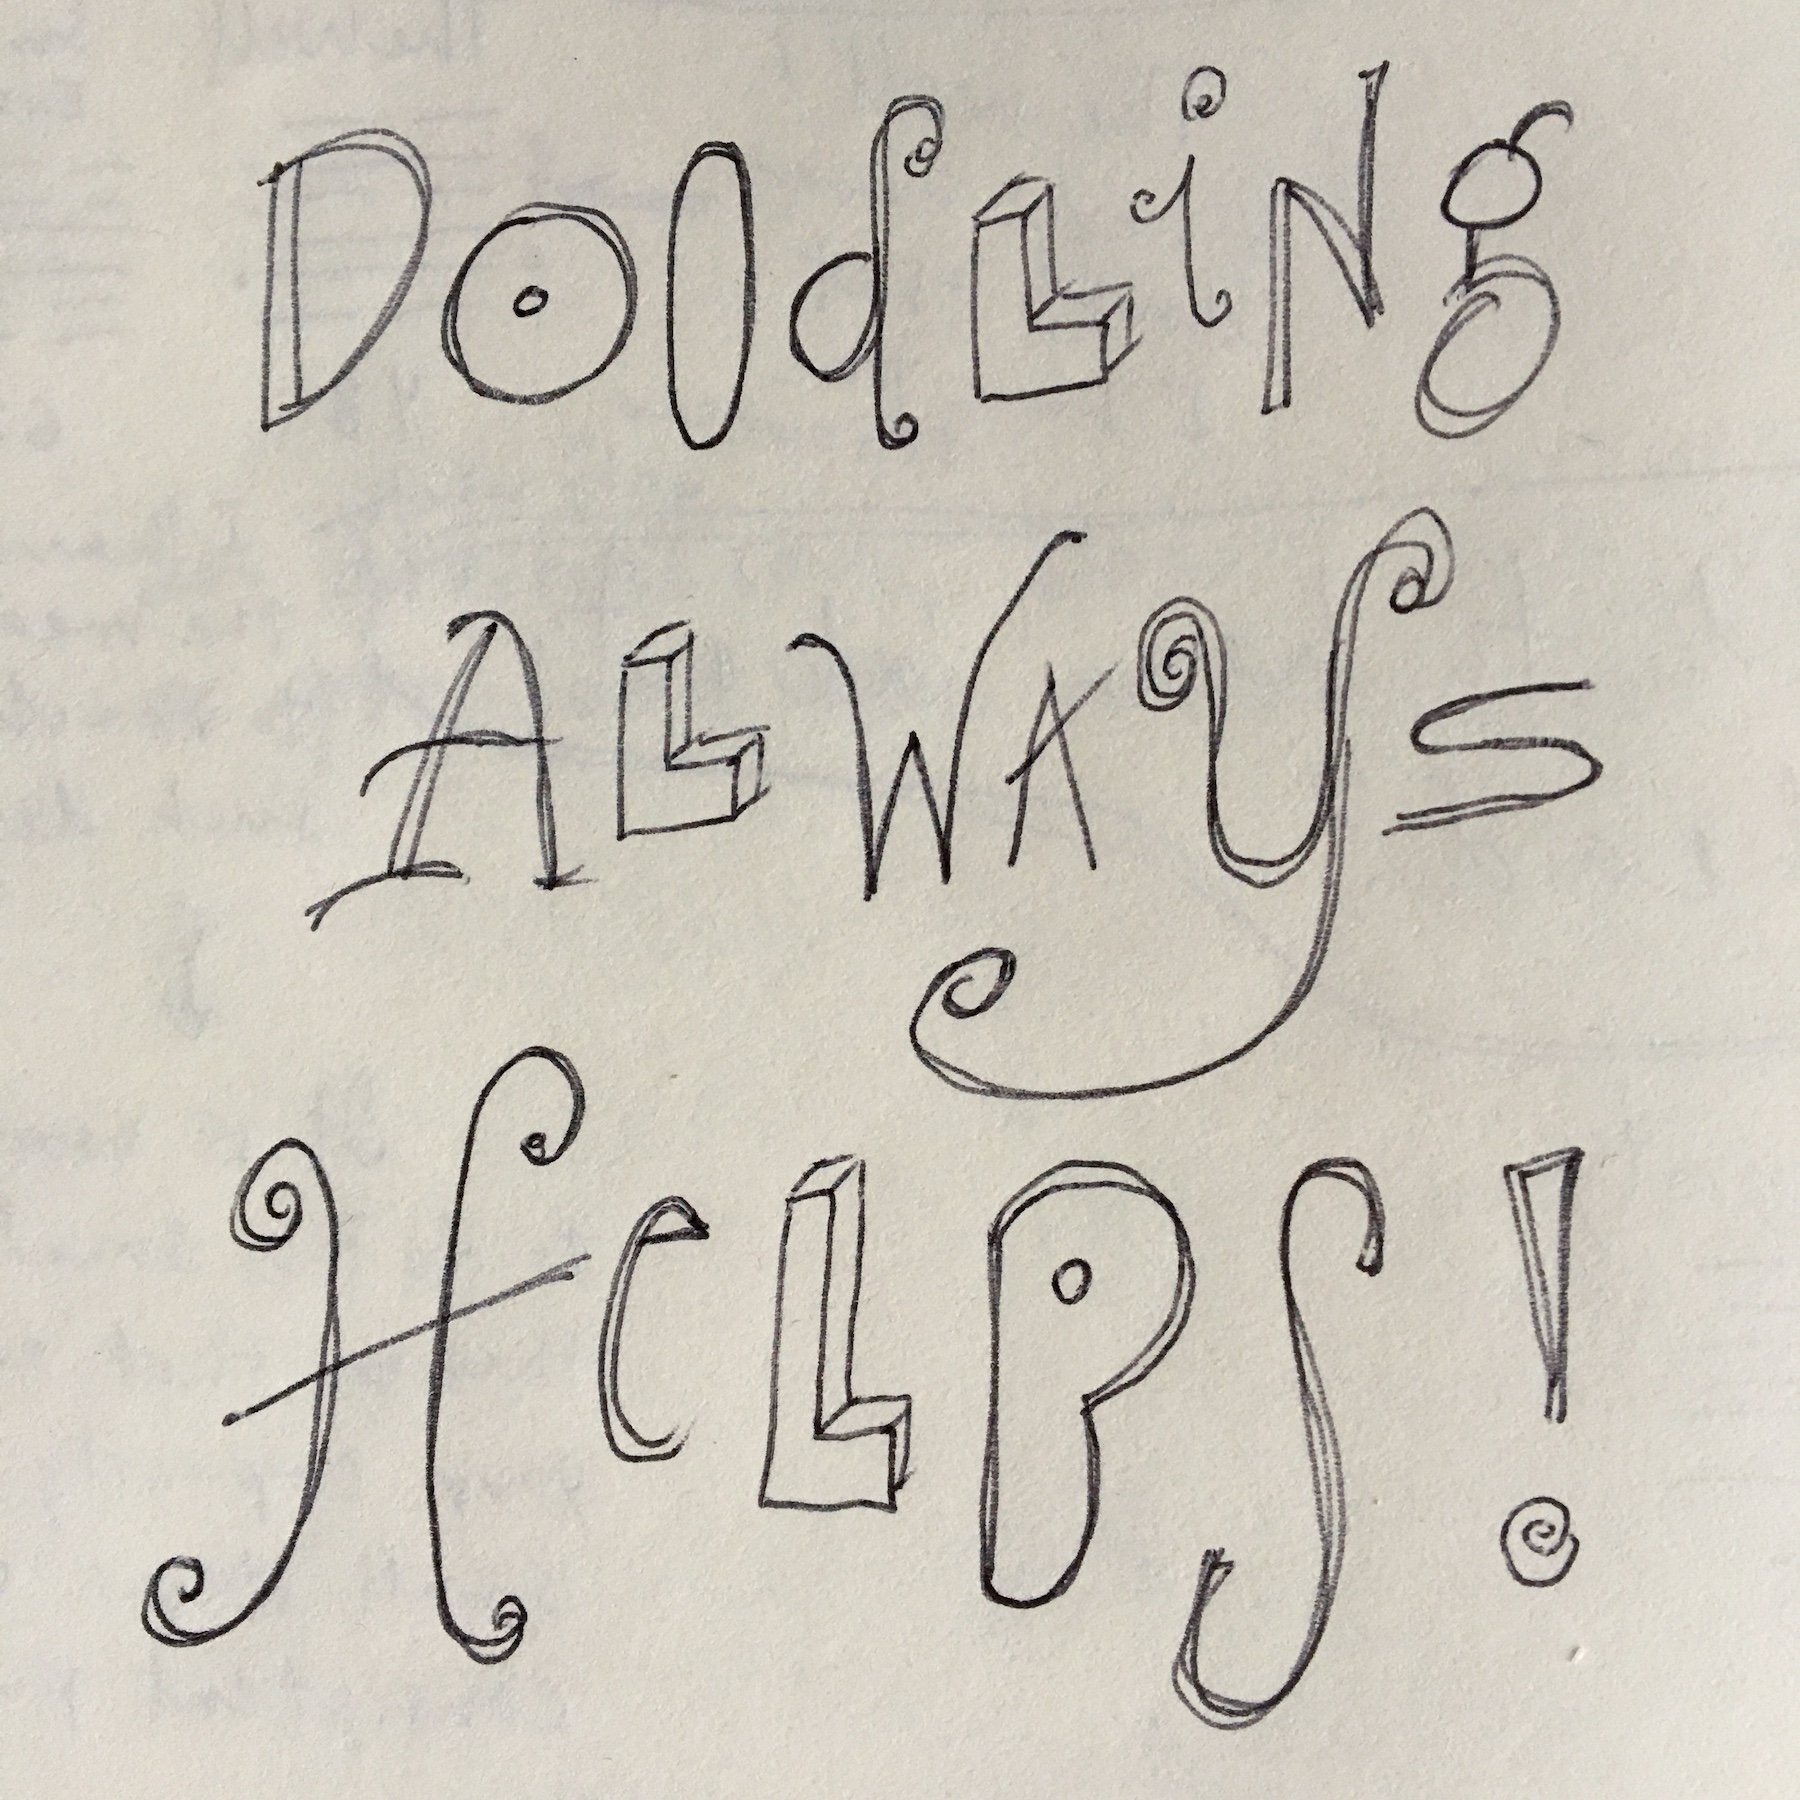 DOOdLiNg
ALWAYS
HELPS!